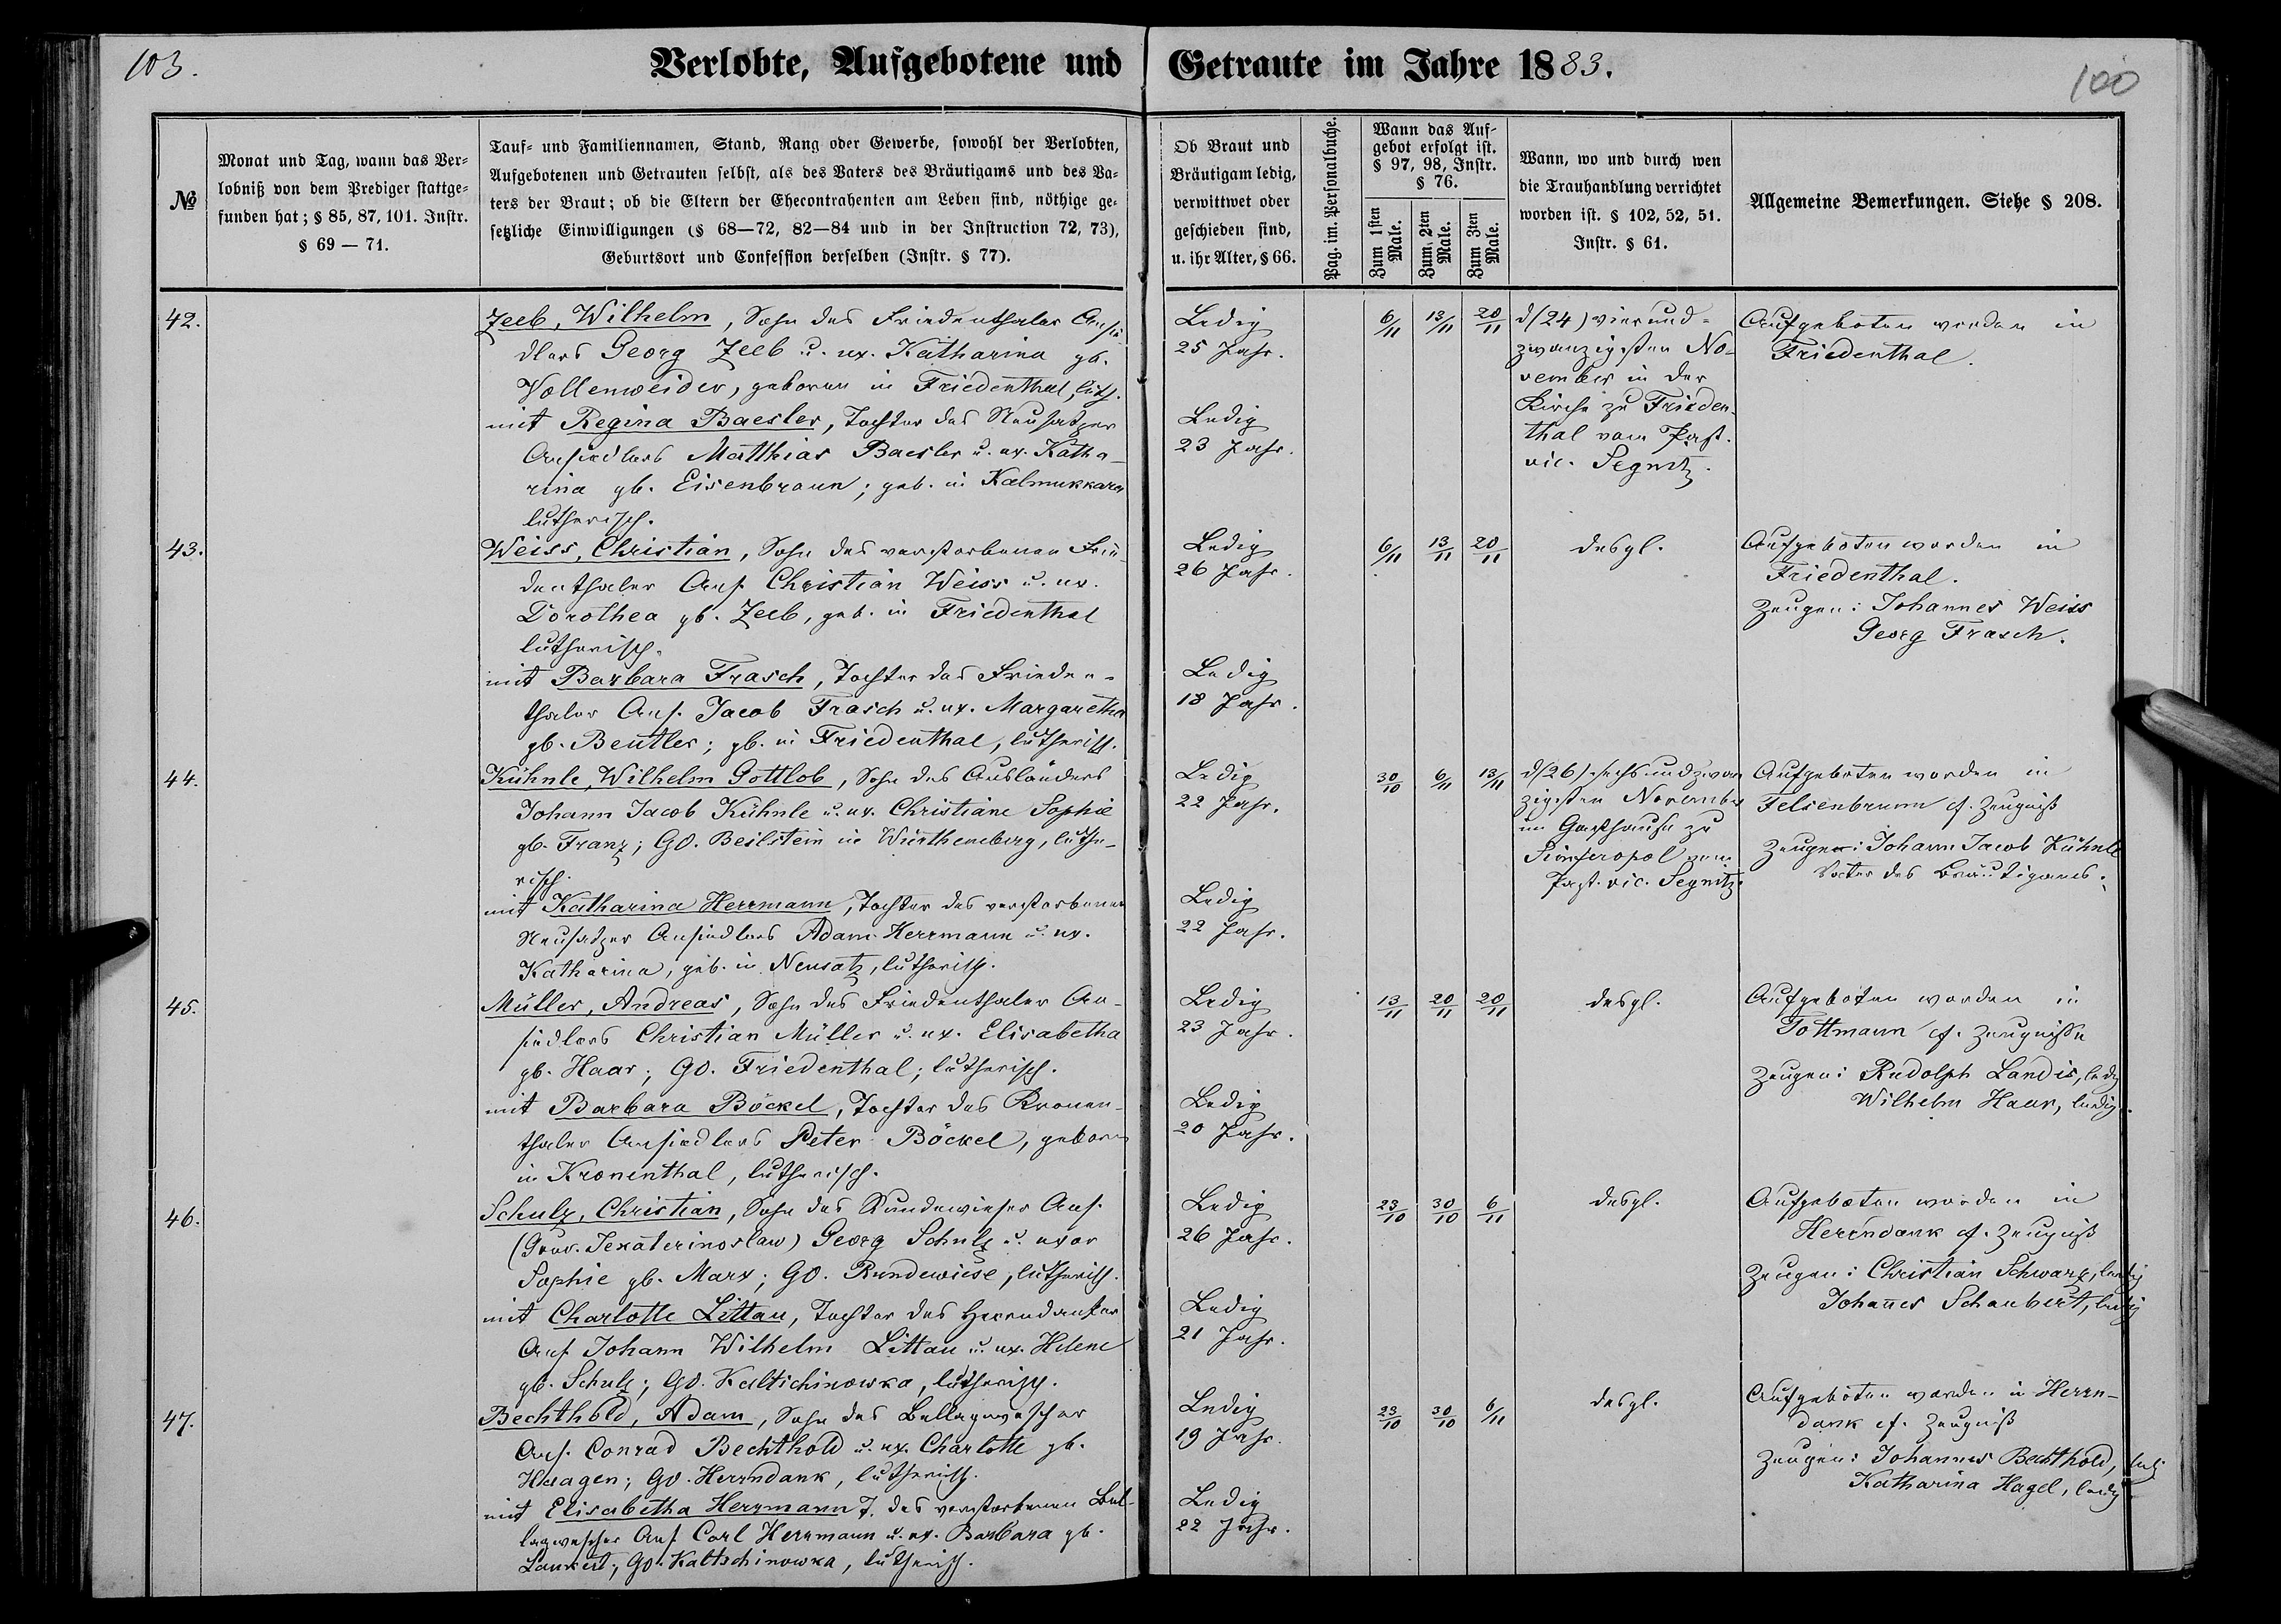 103.
Verlobte, Aufgebotene und Getraute im Jahre 1883.
100
№
Monat und Tag, wann das Ver-
lobniß von dem Prediger stattge-
funden hat; § 85, 87, 101. Instr.
§ 69 — 71.
Tauf- und Familiennamen, Stand, Rang oder Gewerbe, sowohl der Verlobten,
Aufgebotenen und Getrauten selbst, als des Vaters des Bräutigams und des Va-
ters der Braut; ob die Eltern der Ehecontrahenten am Leben sind, nöthige ge-
setzliche Einwilligungen (§ 68—72, 82—84 und in der Instruction 72, 73),
Geburtsort und Confession derselben (Instr. § 77).
Ob Braut und
Bräutigam ledig,
verwittwet oder
geschieden sind,
u. ihr Alter, § 66.
Pag. im. Personalbuche.
Wann das Auf-
gebot erfolgt ist.
§ 97, 98, Instr.
§ 76.
Zum 1sten
Male.
Zum 2ten
Male.
Zum 3ten
Male.
Wann, wo und durch wen
die Trauhandlung verrichtet
worden ist. § 102, 52, 51.
Instr. § 61.
Allgemeine Bemerkungen. Siehe § 208.
42.
Zeeb, Wilhelm, Sohn des Friedenthaler Ansie-
dlers Georg Zeeb u. ux. Katharina gb.
Vollenweider, geboren in Friedenthal, luth.
mit Regina Baesler, Tochter des Neusatzer
Ansiedlers Matthias Baesler u. ux. Katha-
rina gb. Eisenbraun; geb. in Kalmukkara
lutherisch.
Ledig
25 Jahr.
Ledig
23 Jahr.
6/11 13/11 20/11
d/(24) vierund-
zwanzigsten No-
vember in der
Kirche zu Frieden-
thal vom Past.
vic. Segnitz.
Aufgeboten worden in
Friedenthal.
43.
Weiss, Christian, Sohn des verstorbenen Frie-
denthaler Ans. Christian Weiss u. ux.
Dorothea gb. Zeeb, geb. in Friedenthal
lutherisch.
mit Barbara Frasch, Tochter des Frieden-
thaler Ans. Jacob Frasch u. ux. Margaretha
gb. Beutler; gb. in Friedenthal, lutherisch.
Ledig
26 Jahr.
Ledig
18 Jahr.
6/11 13/11 20/11
desgl.
Aufgeboten worden in
Friedenthal.
Zeugen: Johannes Weiss
Georg Frasch.
44.
Kühnle, Wilhelm Gottlob, Sohn des Ausländers
Johann Jacob Kühnle u. ux. Christiane Sophie
gb. Franz; GO. Beilstein in Würthemberg, luthe-
risch.
mit Katharina Herrmann, Tochter des verstorbenen
Neusatzer Ansiedlers Adam Herrmann u. ux.
Katharina, geb. in Neusatz, lutherisch.
Ledig
22 Jahr.
Ledig
22 Jahr.
30/10 6/11 13/11
d/(26) sechsundzwan
zigsten November
im Gasthause zu
Simferopol vom
Past. vic. Segnitz.
Aufgeboten worden in
Felsenbrunn cf. Zeugniß
Zeuge: Johann Jacob Kühnle
Vater des Bräutigams.
45.
Müller, Andreas, Sohn des Friedenthaler An-
siedlers Christian Müller u. ux. Elisabetha
gb. Haar; GO. Friedenthal; lutherisch.
mit Barbara Böckel, Tochter des Kronen-
thaler Ansiedlers Peter Böckel, geboren
in Kronenthal, lutherisch.
Ledig
23 Jahr.
Ledig
20 Jahr.
13/11 20/11 20/11
desgl.
Aufgeboten worden in
Tottmann cf. Zeugnisse
Zeugen: Rudolph Landis, ledig
Wilhelm Haar, ledig.
46.
Schulz, Christian, Sohn des Rundewieser Ans.
(Gouv. Jekaterinoslaw) Georg Schulz u. uxor
Sophie gb. Marx; GO. Rundewiese, lutherisch.
mit Charlotte Littau, Tochter des Herrndanker
Ans. Johann Wilhelm Littau u. ux. Helene
gb. Schulz; GO. Kaltschinowka, lutherisch.
Ledig
26 Jahr.
Ledig
21 Jahr.
23/10 30/10 6/11
desgl.
Aufgeboten worden in
Herrndank cf. Zeugniß
Zeugen: Christian Schwarz, ledig
Johannes Schaubert, ledig
47.
Bechthold, Adam, Sohn des Bellagwescher
Ans. Conrad Bechthold u. ux. Charlotte gb.
Haagen; GO. Herrndank, lutherisch.
mit Elisabetha Herrmann T. des verstorbenen Bel-
lagwescher Ans. Carl Herrmann u. ux. Barbara gb.
Lankert; GO. Kaltschinowka, lutherisch.
Ledig
19 Jahr.
Ledig
22 Jahr.
23/10 30/10 6/11
desgl.
Aufgeboten worden in Herrn-
dank cf. Zeugniß
Zeugen: Johannes Bechthold, ledig
Katharina Hagel, ledig